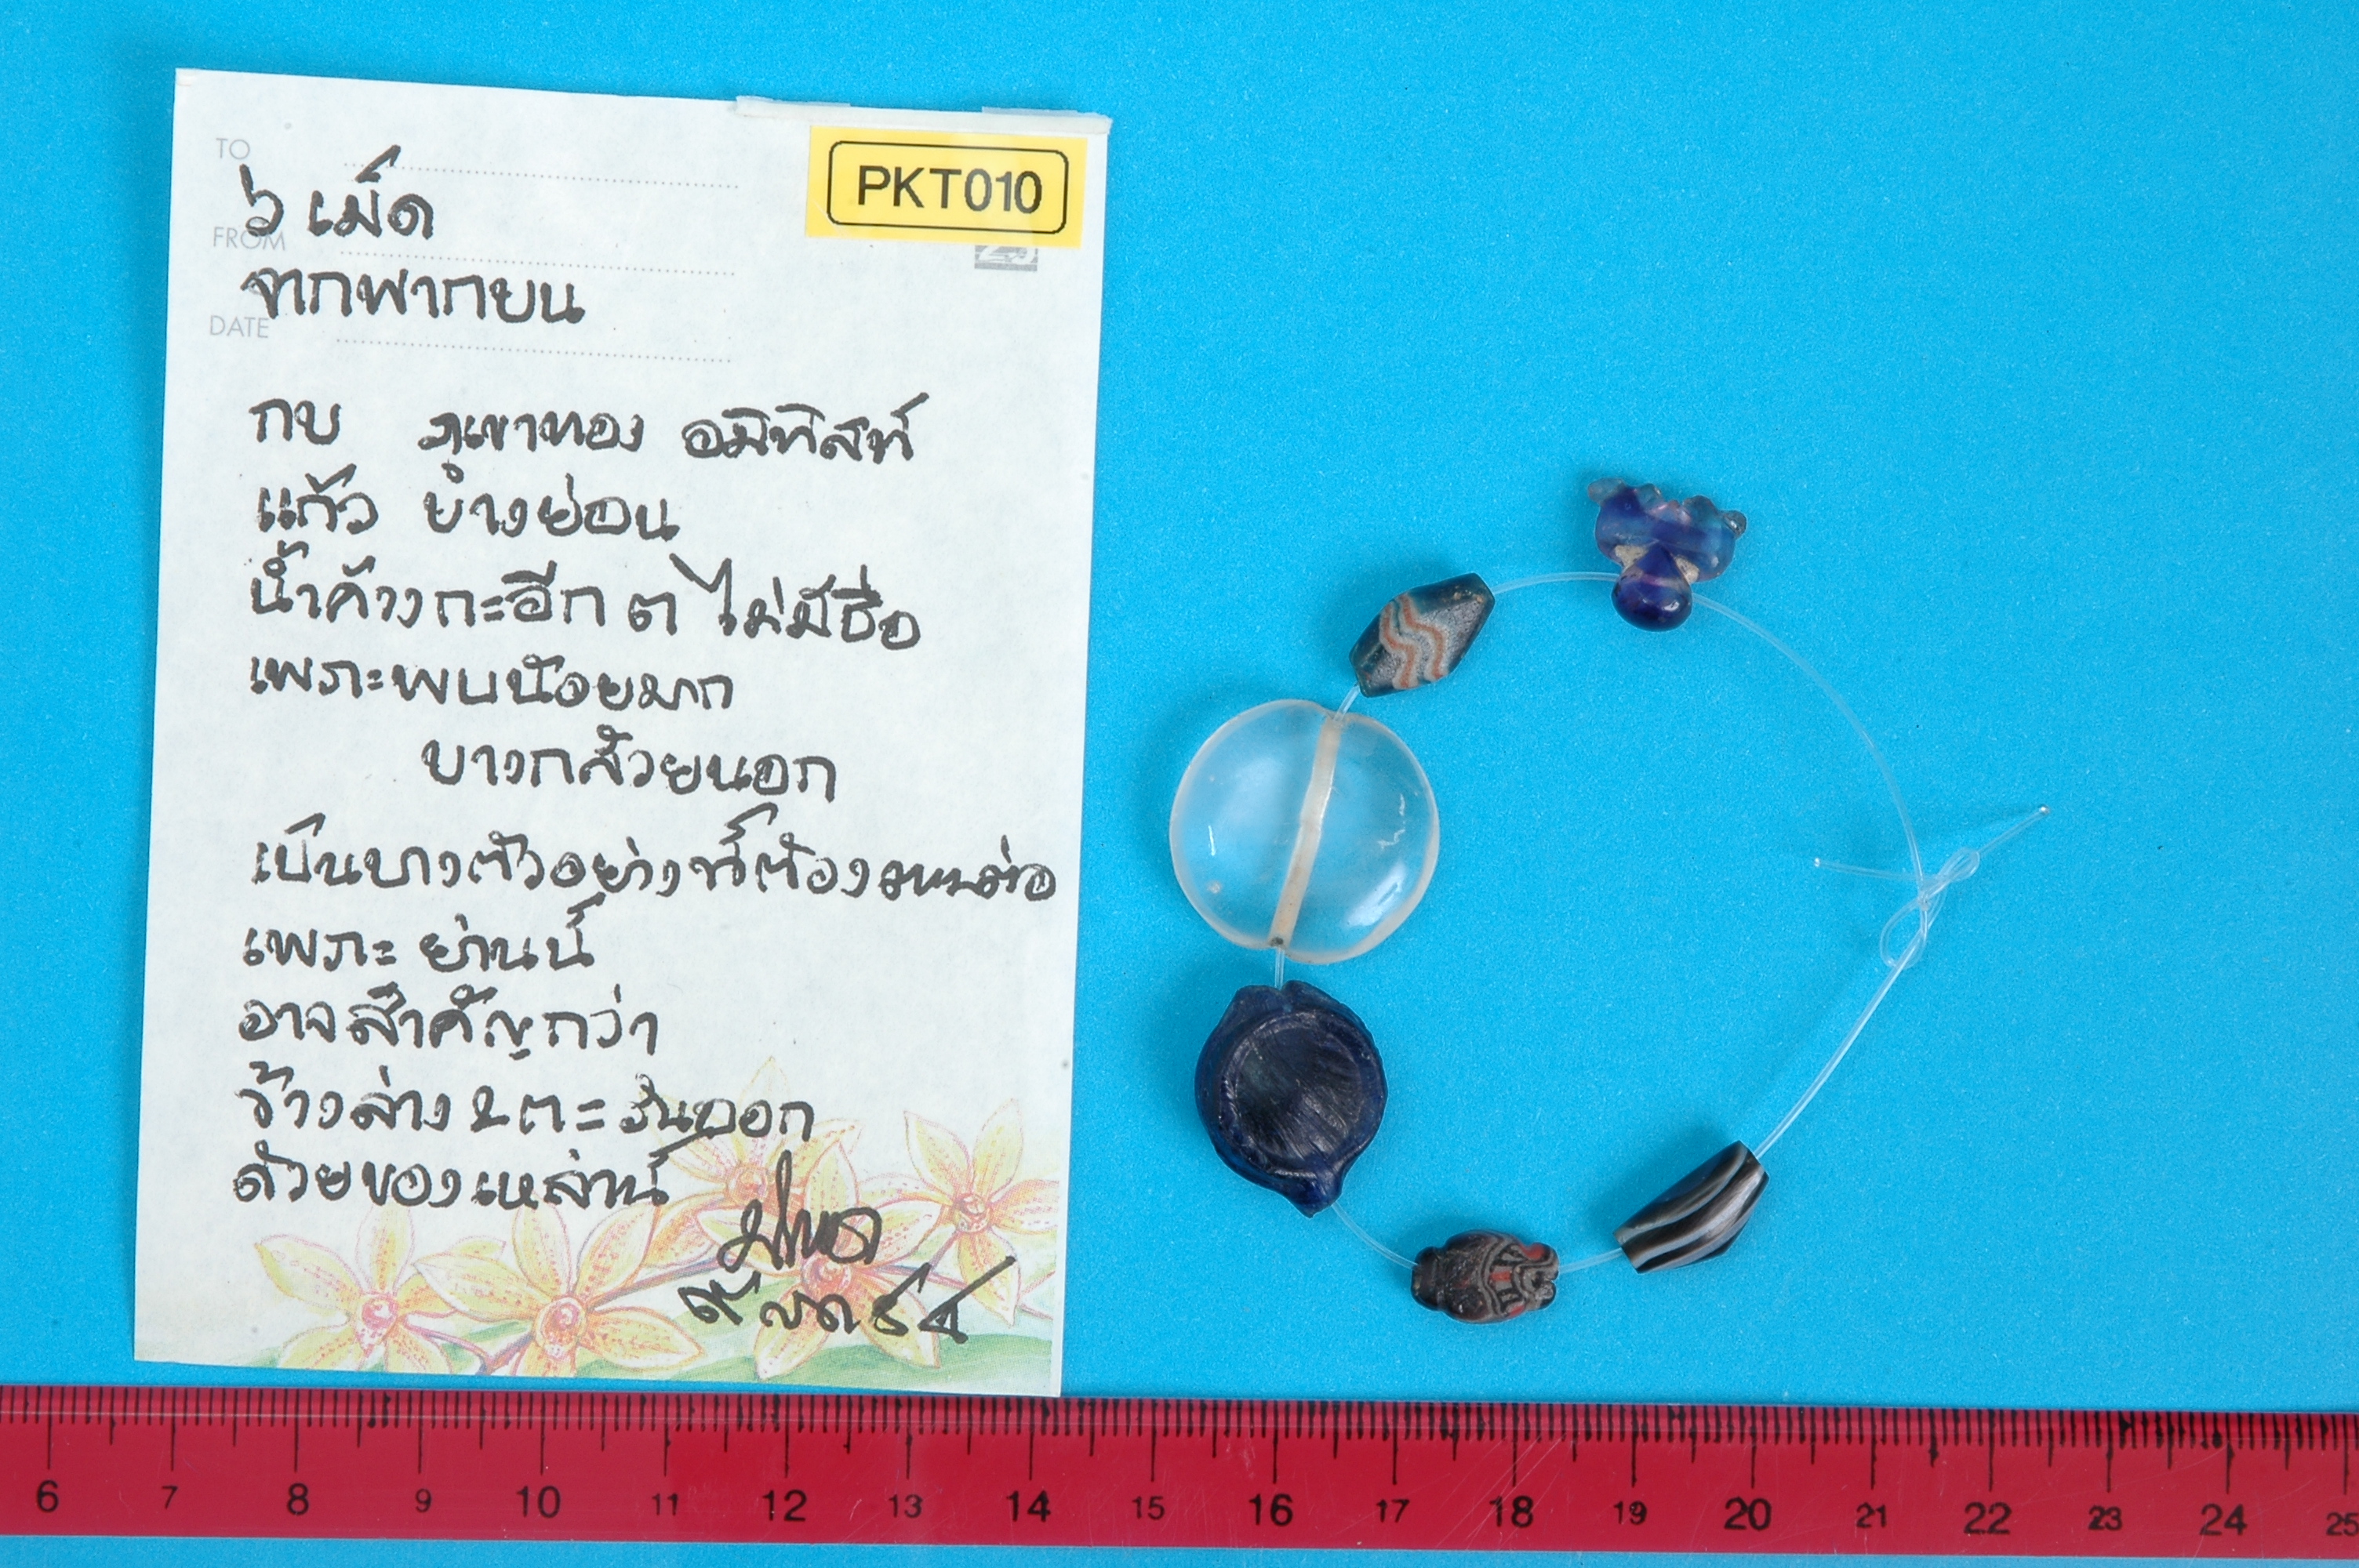 TO
PKT010
๖ เม็ด
FROM
จากฟากบน
DATE
กบ ภูเขาทอง อมิทิสท์
แก้ว ย่างย่อน
น้ำค้างกะอีก ๓ ไม่มีชื่อ
เพราะพบน้อยมาก
บางกล้วยนอก
เป็นบางตัวอย่างที่ต้อง
เพราะ ย่านนี้
อาจสำคัญกว่า
ข้างล่าง & ตะวันออก
ด้วยของเหล่านี้
6 7 8 9 10 11 12 13 14 15 16 17 18 19 20 21 22 23 24 25